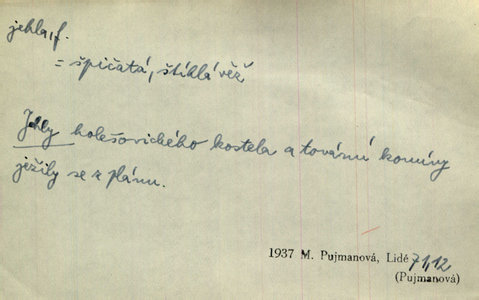 jehla, f.
= špičatá, štíhlá věž
Jehly holešovického kostela a tovární komíny
ježily se z plánu.
1937 M. Pujmanová, Lidé 71,12
(Pujmanová)